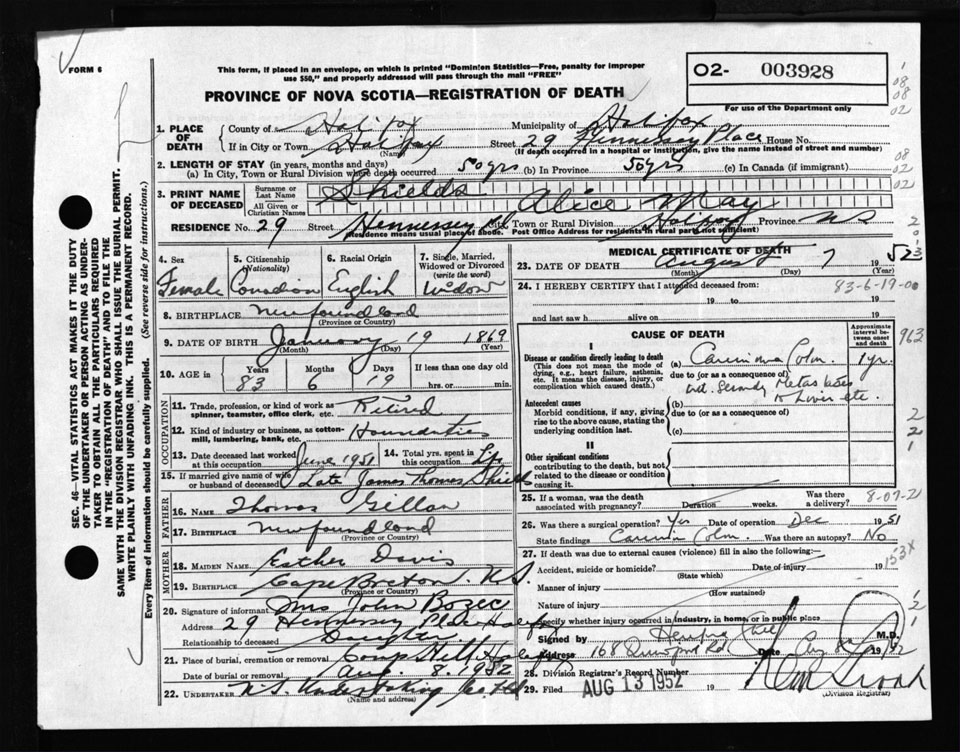 FORM 6
This form, if placed in an envelope, on which is printed "Dominion Statistics—Free, penalty for improper
use $50," and properly addressed will pass through the mail "FREE"
O2- 003928
For use of the Department only
PROVINCE OF NOVA SCOTIA—REGISTRATION OF DEATH
1. PLACE OF DEATH
County of Halifax
Municipality of Halifax
If in City or Town Halifax (Name)
Street 29 Hennessey Place House No.
(If death occurred in a hospital or institution, give the name instead of street and number)
2. LENGTH OF STAY (in years, months and days)
(a) In City, Town or Rural Division where death occurred 50 yrs (b) In Province 50 yrs (c) In Canada (if immigrant)
3. PRINT NAME OF DECEASED
Surname or Last Name Shields
All Given or Christian Names Alice May
RESIDENCE No. 29 Street Hennessey Pl City, Town or Rural Division Halifax Province N S
(Residence means usual place of abode. Post Office Address for residents in rural parts not sufficient)
4. Sex Female
5. Citizenship (Nationality) Canadian
6. Racial Origin English
7. Single, Married, Widowed or Divorced (write the word) Widow
8. BIRTHPLACE Newfoundland
(Province or Country)
9. DATE OF BIRTH January 19 1869
(Month) (Day) (Year)
10. AGE in Years 83 Months 6 Days 19
If less than one day old
hrs. or min.
OCCUPATION
11. Trade, profession, or kind of work as spinner, teamster, office clerk, etc. Retired
12. Kind of industry or business, as cotton-mill, lumbering, bank, etc.
13. Date deceased last worked at this occupation June 1951
14. Total yrs. spent in this occupation Life
15. If married give name of wife or husband of deceased Late James Thomas Shields
FATHER
16. NAME Thomas Gillan
17. BIRTHPLACE Newfoundland
(Province or Country)
MOTHER
18. MAIDEN NAME Esther Davis
19. BIRTHPLACE Cape Breton. N.S.
(Province or Country)
20. Signature of informant Mrs John Bozec
Address 29 Hennessey Place Halifax
Relationship to deceased Daughter
21. Place of burial, cremation or removal Camp Hill Halifax
Date of burial or removal Aug. 8. 1952
22. UNDERTAKER N.S. Undertaking Co. Ltd
(Name and address)
MEDICAL CERTIFICATE OF DEATH
23. DATE OF DEATH August 7 1952
(Month) (Day) (Year)
24. I HEREBY CERTIFY that I attended deceased from: 83-6-19-00
19 to 19
and last saw h alive on 19
CAUSE OF DEATH
Approximate interval between onset and death
I
Disease or condition directly leading to death
(This does not mean the mode of dying, e.g., heart failure, asthenia, etc. It means the disease, injury, or complication which caused death.)
(a) Carcinoma Colon 1 yr.
due to (or as a consequence of)
Metastases to Liver etc.
Antecedent causes
Morbid conditions, if any, giving rise to the above cause, stating the underlying condition last.
(b)
due to (or as a consequence of)
(c)
II
Other significant conditions
contributing to the death, but not related to the disease or condition causing it.
25. If a woman, was the death associated with pregnancy? Duration weeks. Was there a delivery?
8-07-21
26. Was there surgical operation? Yes Date of operation Dec 1951
State findings Carcinoma Colon Was there an autopsy? No
27. If death was due to external causes (violence) fill in also the following:—
Accident, suicide or homicide? Date of injury 19
(State which)
Manner of injury
(How sustained)
Nature of injury
Specify whether injury occurred in industry, in home, or in public place
Signed by M.D.
168 Quinpool Rd Date Aug 1952
28. Division Registrar's Record Number
29. Filed AUG 13 1952 19
(Division Registrar)
SEC. 46—VITAL STATISTICS ACT MAKES IT THE DUTY
OF THE UNDERTAKER OR PERSON ACTING AS UNDERTAKER
TO OBTAIN ALL THE PARTICULARS REQUIRED
IN THE "REGISTRATION OF DEATH" AND TO FILE THE
SAME WITH THE DIVISION REGISTRAR WHO SHALL ISSUE THE BURIAL PERMIT.
WRITE PLAINLY WITH UNFADING INK. THIS IS A PERMANENT RECORD.
Every item of information should be carefully supplied. (See reverse side for instructions.)